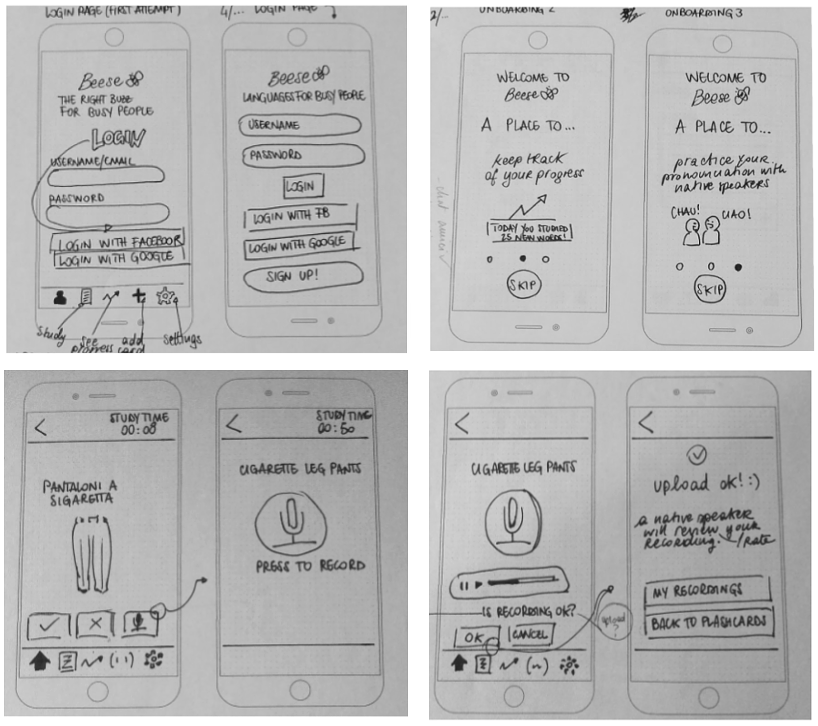 LOGIN PAGE (FIRST ATTEMPT)
Beese
THE RIGHT BUZZ
FOR BUSY PEOPLE
LOGIN
USERNAME/EMAIL
PASSWORD
LOGIN WITH FACEBOOK
LOGIN WITH GOOGLE
Study
see
progress
add
card
settings
4/... LOGIN PAGE
Beese
LANGUAGES FOR BUSY PEOPLE
USERNAME
PASSWORD
LOGIN
LOGIN WITH FB
LOGIN WITH GOOGLE
SIGN UP!
2/- ONBOARDING 2
WELCOME TO
Beese
A PLACE TO...
keep track
of your progress
TODAY YOU STUDIED
25 NEW WORDS!
SKIP
ONBOARDING 3
WELCOME TO
Beese
A PLACE TO...
practice your
pronunciation with
native speakers
CIAO!
CIAO!
SKIP
STUDY TIME
00:08
PANTALONI A
SIGARETTA
STUDY TIME
00:50
CIGARETTE LEG PANTS
PRESS TO RECORD
CIGARETTE LEG PANTS
IS RECORDING OK?
upload
?
OK
CANCEL
upload ok! :)
a native speaker
will review your
recording. /Rate
MY RECORDINGS
BACK TO FLASHCARDS